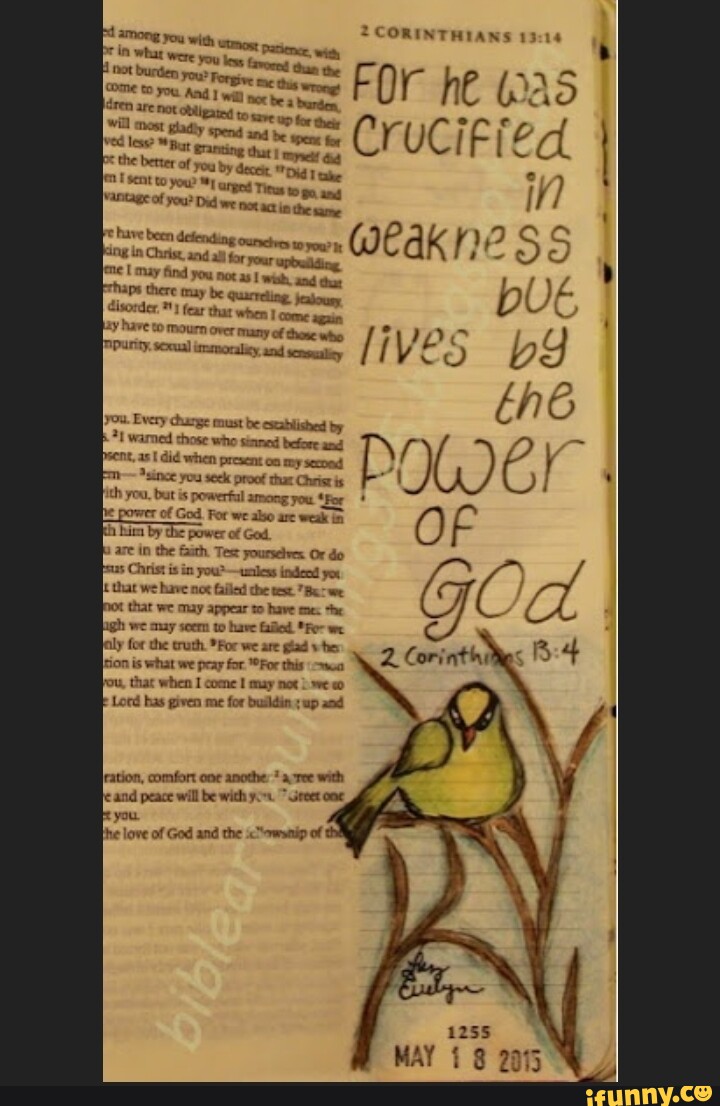 2 CORINTHIANS 13:14
ed among you with utmost patience, with
or in what were you less favored than the
I not burden you? Forgive me this wrong!
come to you. And I will not be a burden,
ldren are not obligated to save up for their
will most gladly spend and be spent for
ved less? 16 But granting that I myself did
ot the better of you by deceit. 17 Did I take
m I sent to you? 18 I urged Titus to go, and
vantage of you? Did we not act in the same
e have been defending ourselves to you? It
king in Christ, and all for your upbuilding,
me I may find you not as I wish, and that
erhaps there may be quarreling, jealousy,
disorder. 21 I fear that when I come again
ay have to mourn over many of those who
mpurity, sexual immorality, and sensuality
you. Every charge must be established by
s. 2 I warned those who sinned before and
sent, as I did when present on my second
em— 3 since you seek proof that Christ is
ith you, but is powerful among you. 4 For
e power of God. For we also are weak in
th him by the power of God.
u are in the faith. Test yourselves. Or do
sus Christ is in you?—unless indeed you
t that we have not failed the test. 7 But we
not that we may appear to have met the
ugh we may seem to have failed. 8 For we
nly for the truth. 9 For we are glad when
tion is what we pray for. 10 For this reason
ou, that when I come I may not have to
e Lord has given me for building up and
ration, comfort one another, agree with
e and peace will be with you. Greet one
t you.
he love of God and the fellowship of the
For he was
Crucified
in
weakness
but
lives by
the
power
of
God
2 Corinthians 13:4
Evelyn
1255
MAY 18 2015
ifunny.co